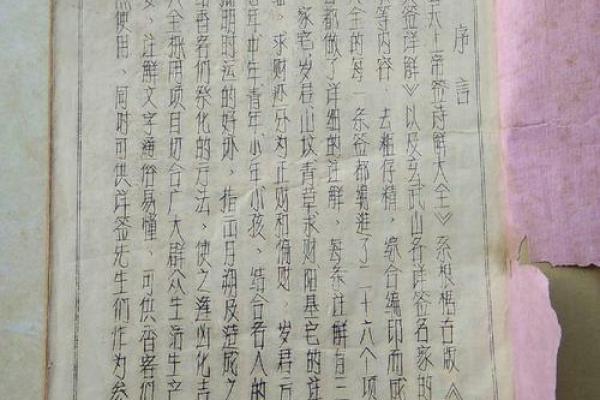 序言
天上帝签诗解大全》系根据古版《
签详解》以及玄武山各详签名家的
等内容,去粗存精,综合编印而成
全的每一条签都编进了二十六个项
都做了详细的注解,每条注解有二
家宅岁君山坟青草求财阳基宅的注
求财还分为正财和偏财,岁君
年中年青年少年小孩,结合各人的
明的运的好坏,指出月朔及造成之
香客们祭化的方法,使之逢凶化吉
大全 用项目切合广大群众生活生产
,注解文字通俗易懂,可供香客们
照使用,同时可供详签先生们作为参